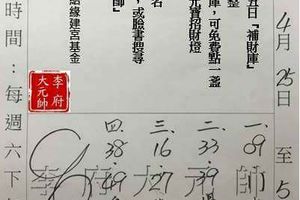 4月25日至5
五日『補財庫
庫，可免費點一盞
元寶招財燈
，或臉書搜尋
名
師』
結緣建宮基金
時間：每週六下
李府
大元帥
一.09
二.33.39
三.16.27
四.38.49
李府大元帥